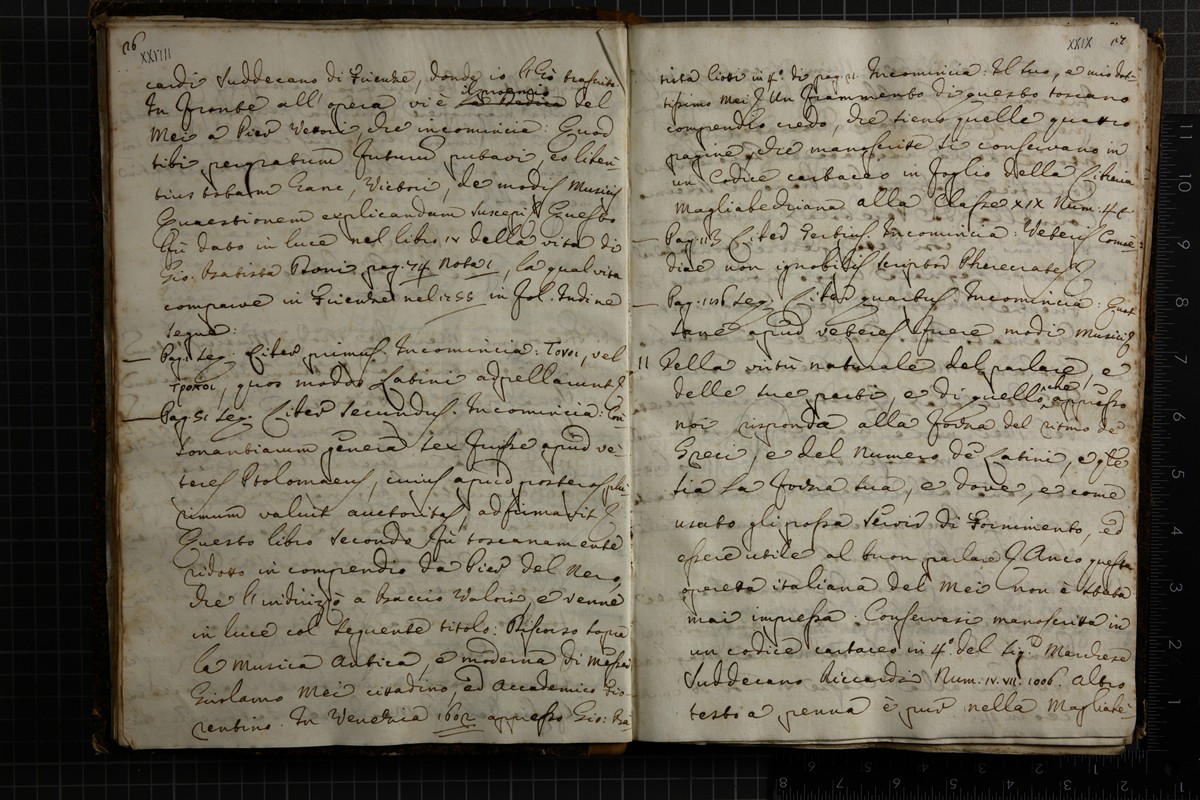 26
XXVIII
cardi Suddecano di Firenze, donde io l'hò trascritto.
In fronte all'opera vi è la Dedica il proemio del
Mei a Pier Vettori, che incomincia: Quod
tibi pergratum futurū putavi, eo liben-
tius totam hanc, Victori, de modis Musicis
Quaestionem explicandam suscepi. Questo
fù dato in luce nel libro IV della vita di
Gio: Batista Doni pag. 74 Nota 1, la qual vita
comparve in Firenze nel 1755 in fol. Indi ne
segue:
Pag. Liber primus. Incomincia: Τονοι, vel
τροποι, quos modos Latini appellarunt
Pag. 51 Liber secundus. Incomincia: Con-
sonantiarum genera sex fuisse apud ve-
teres Ptolomaeus, cuius apud posteros plu-
rimum valuit auctoritas, adfirmavit
Questo libro secondo fù toscanamente
ridotto in compendio da Pier del Nero,
che l'indirizzò a Baccio Valori, e venne
in luce col seguente titolo: Discorso sopra
la Musica Antica, e moderna di Messer
Girolamo Mei cittadino, ed Accademico Fio-
rentino. In Venezia 1602 appresso Gio: Ba-
XXIX
27
tista Ciotti in 4º. di pag. Incomincia: Il tuo, e mio dot-
tissimo Mei. Un frammento di questo toscano
compendio credo, che sieno quelle quattro
pagine, che manoscritte si conservano in
un Codice cartaceo in foglio della Libreria
Magliabechiana alla Classe XIX Num:
Pag. 113 Liber tertius. Incomincia: Veteris Comoe-
diae non ignobilis scriptor Pherecrates
Pag. 156 Liber quartus. Incomincia:
apud veteres fuere modi Musici
11 Della virtù naturale del parlare, e
delle sue parti, e di quello, che appresso
noi risponda alla forza del ritmo de'
Greci, e del Numero de' Latini, e qle
sia la forza sua, e dove, e come
usato gli possa servir di fornimento, ed
essere utile al buon parlare. Anco questa
operetta italiana del Mei non è stata
mai impressa. Conservasi manoscritta in
un codice cartaceo in 4º. del Sig.r Marchese
Suddecano Riccardi Num. IV. VII. 1006. Altro
testo a penna è pur nella Magliabe-